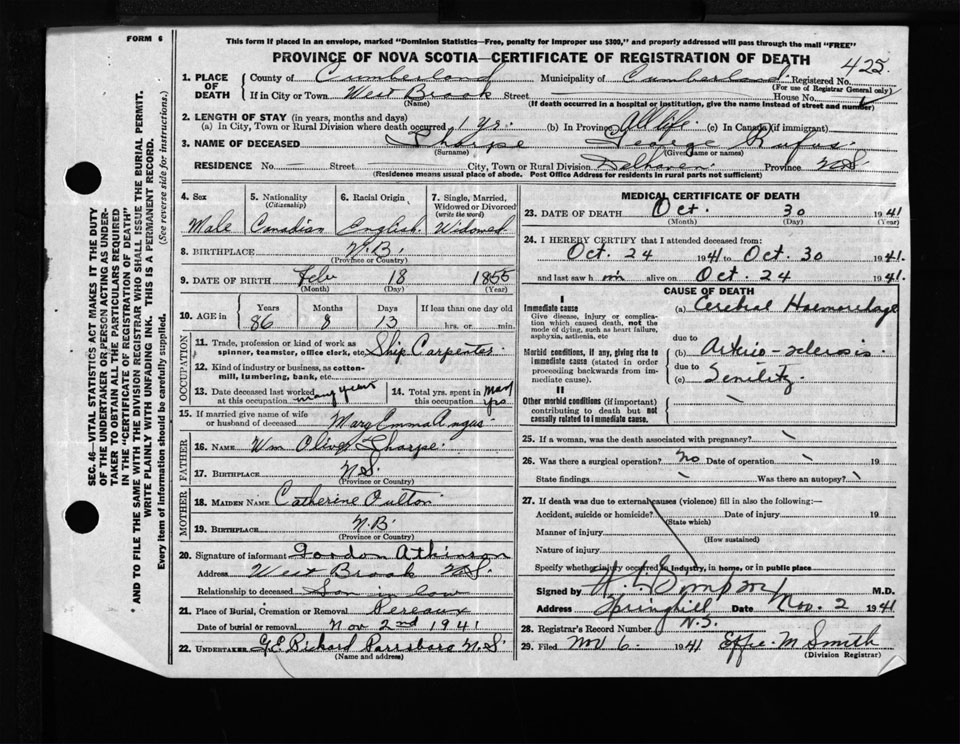 FORM 6
This form if placed in an envelope, marked "Dominion Statistics—Free, penalty for improper use $300," and properly addressed will pass through the mail "FREE"
PROVINCE OF NOVA SCOTIA—CERTIFICATE OF REGISTRATION OF DEATH
425.
1. PLACE OF DEATH
County of Cumberland Municipality of Cumberland Registered No.
(For use of Registrar General only)
If in City or Town West Brook Street House No.
(Name) (If death occurred in a hospital or institution, give the name instead of street and number)
2. LENGTH OF STAY (in years, months and days)
(a) In City, Town or Rural Division where death occurred 1 yr. (b) In Province All life. (c) In Canada (if immigrant)
3. NAME OF DECEASED Tharpe George Rufus.
(Surname) (Given name or names)
RESIDENCE No. — Street — City, Town or Rural Division Delhaven. Province N.S
(Residence means usual place of abode. Post Office Address for residents in rural parts not sufficient)
4. Sex
Male
5. Nationality
(Citizenship)
Canadian
6. Racial Origin
English.
7. Single, Married, Widowed or Divorced
(write the word)
Widowed
8. BIRTHPLACE N.B.
(Province or Country)
9. DATE OF BIRTH Feb 18 1855
(Month) (Day) (Year)
10. AGE in
Years Months Days If less than one day old
86 8 13 hrs. or min.
OCCUPATION
11. Trade, profession or kind of work as
spinner, teamster, office clerk, etc. Ship Carpenter
12. Kind of industry or business, as cotton-
mill, lumbering, bank, etc.
13. Date deceased last worked
at this occupation many years
14. Total yrs. spent in
this occupation many yrs
15. If married give name of wife
or husband of deceased Mary Emma Angus.
FATHER
16. NAME Wm Oliver Tharpe.
17. BIRTHPLACE N.S.
(Province or Country)
MOTHER
18. MAIDEN NAME Catherine Fulton
19. BIRTHPLACE N.B.
(Province or Country)
20. Signature of informant Gordon Atkinson
Address West Brook N.S.
Relationship to deceased Son in law
21. Place of Burial, Cremation or Removal Pereaux
Date of burial or removal Nov 2nd 1941
22. UNDERTAKER G.E. Rickard Parrsboro N.S
(Name and address)
MEDICAL CERTIFICATE OF DEATH
23. DATE OF DEATH Oct. 30 1941
(Month) (Day) (Year)
24. I HEREBY CERTIFY that I attended deceased from:
Oct. 24 1941 to Oct. 30 1941.
and last saw h im alive on Oct. 24 1941.
CAUSE OF DEATH
I
Immediate cause
Give disease, injury or complica-
tion which caused death, not the
mode of dying, such as heart failure,
asphyxia, asthenia, etc
(a) Cerebral Haemorrhage
due to
Morbid conditions, if any, giving rise to
immediate cause (stated in order
proceeding backwards from im-
mediate cause).
(b) Arterio-sclerosis
due to
(c) Senility
II
Other morbid conditions (if important)
contributing to death but not
causally related to immediate cause.
25. If a woman, was the death associated with pregnancy?
26. Was there a surgical operation? No Date of operation 19
State findings Was there an autopsy?
27. If death was due to external causes (violence) fill in also the following:—
Accident, suicide or homicide? Date of injury 19
(State which)
Manner of injury
(How sustained)
Nature of injury
Specify whether injury occurred in industry, in home, or in public place
Signed by H. L. Simpson M.D.
Address Springhill N.S. Date Nov. 2 1941
28. Registrar's Record Number
29. Filed Nov 6. 1941 Effie M Smith
(Division Registrar)
SEC. 46—VITAL STATISTICS ACT MAKES IT THE DUTY
OF THE UNDERTAKER OR PERSON ACTING AS UNDER-
TAKER TO OBTAIN ALL THE PARTICULARS REQUIRED
IN THE "CERTIFICATE OF REGISTRATION OF DEATH"
AND TO FILE THE SAME WITH THE DIVISION REGISTRAR WHO SHALL ISSUE THE BURIAL PERMIT.
WRITE PLAINLY WITH UNFADING INK. THIS IS A PERMANENT RECORD.
Every item of information should be carefully supplied. (See reverse side for instructions.)